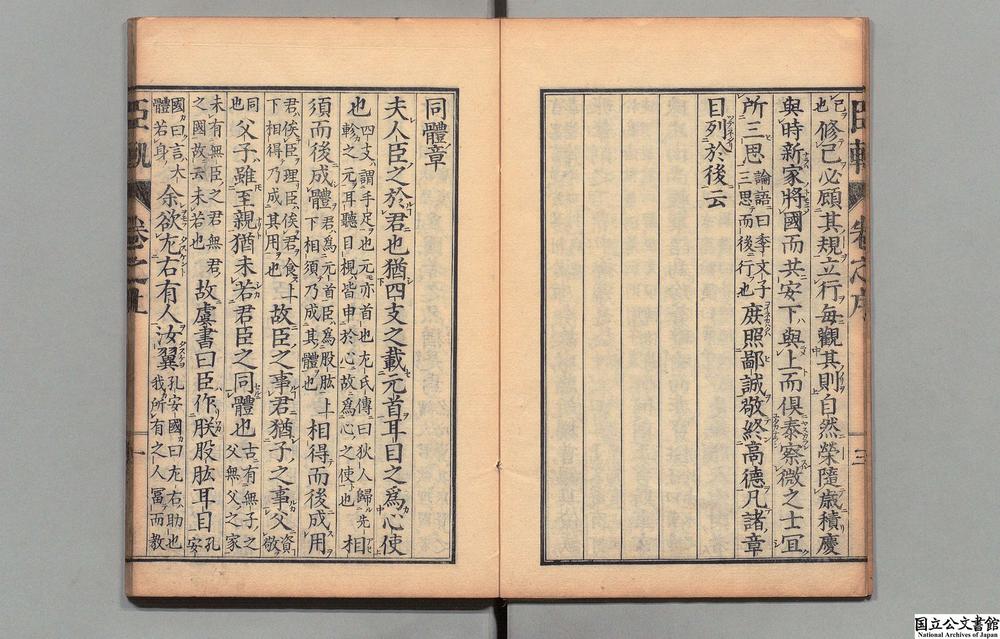 己也修己必顧其規立行每觀其則自然榮隨歲積慶
與時新家將國而共安下與上而俱泰察微之士宜
所三思論語曰季文子三思而後行也庶照鄙誠敬終高德凡諸章
目列於後云
同體章
夫人臣之於君也猶四支之載元首耳目之爲心使
也四支謂手足也元亦首也左氏傳曰狄人歸先軫之元耳聽目視皆申於心故爲心之使也相
須而後成體君爲元首臣爲股肱上下相須乃成其體也相得而後成用
君俟臣理臣俟君食上下相得乃成其用也故臣之事君猶子之事父資敬
同也父子雖至親猶未若君臣之同體也古有無子之父無父之家
未有無臣之君無君之國故云未若也故虞書曰臣作朕股肱耳目孔安
國曰言大體若身余欲左右有人汝翼孔安國曰左右助也我所有之人冨而教
臣軌 卷之序 三
臣軌 卷之上 一
国立公文書館
National Archives of Japan